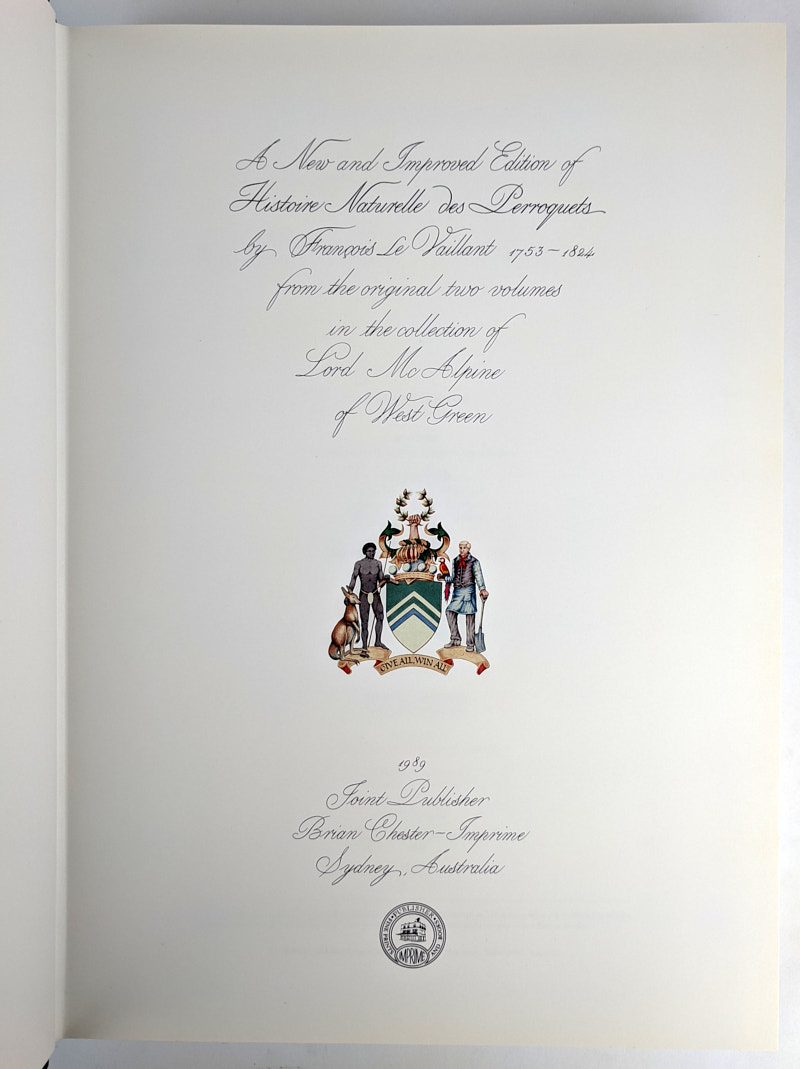 A New and Improved Edition of
Histoire Naturelle des Perroquets
by François Le Vaillant 1753-1824
from the original two volumes
in the collection of
Lord McAlpine
of West Green
GIVE ALL, WIN ALL
1989
Joint Publisher
Brian Chester-Imprime
Sydney, Australia
PUBLISHER
IMPRIME